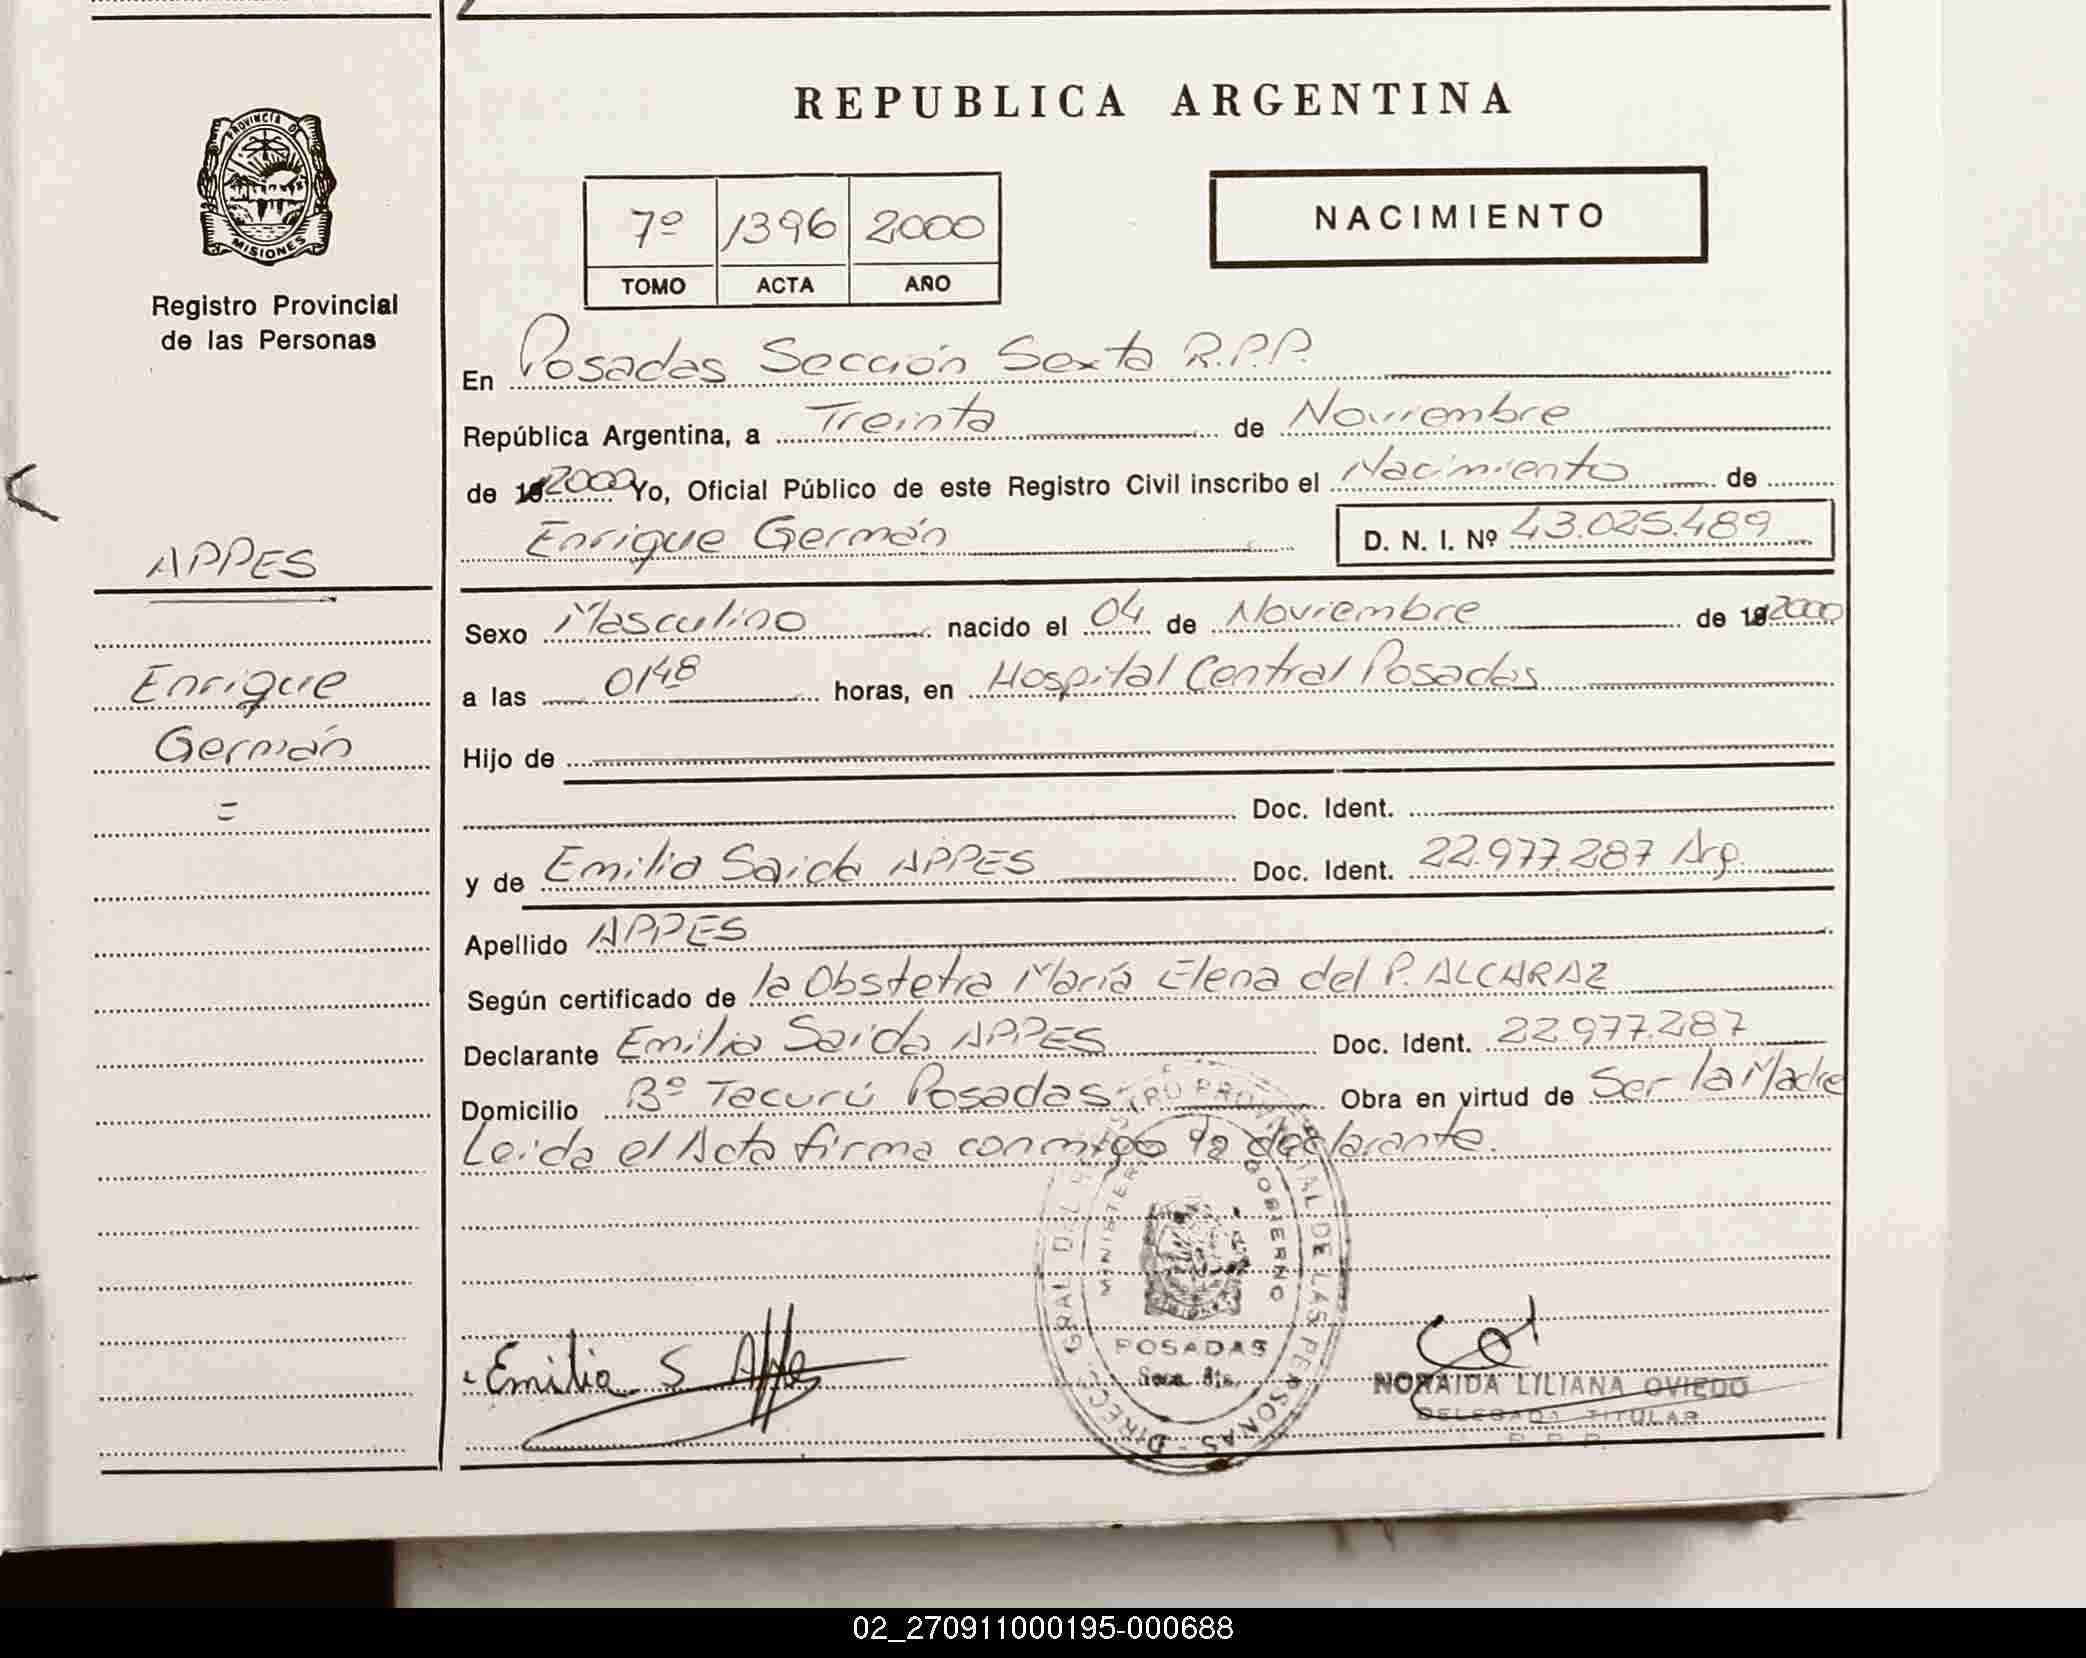 REPUBLICA ARGENTINA
PROVINCIA D
MISIONES
Registro Provincial
de las Personas
7º 1396 2000
TOMO ACTA AÑO
NACIMIENTO
En Posadas Sección Sexta R.P.P.
República Argentina, a Treinta de Noviembre
de 2000 Yo, Oficial Público de este Registro Civil inscribo el Nacimiento de
Enrique Germán D. N. I. Nº 43.025.489
APPES
Enrique
Germán
=
Sexo Masculino nacido el 04 de Noviembre de 2000
a las 0148 horas, en Hospital Central Posadas
Hijo de
Doc. Ident.
y de Emilia Saida APPES Doc. Ident. 22.977.287 Arg.
Apellido APPES
Según certificado de la Obstetra María Elena del P. ALCARAZ
Declarante Emilia Saida APPES Doc. Ident. 22.977.287
Domicilio Bº Tacurú Posadas Obra en virtud de Ser la Madre
Leida el Acta firma conmigo la declarante.
DIRECC. GRAL DEL REGISTRO PROVINCIAL DE LAS PERSONAS
MINISTER GOBIERNO
POSADAS
Emilia S Appe
NORAIDA LILIANA OVIEDO
DELEGADA TITULAR
R. P. P.
02_270911000195-000688